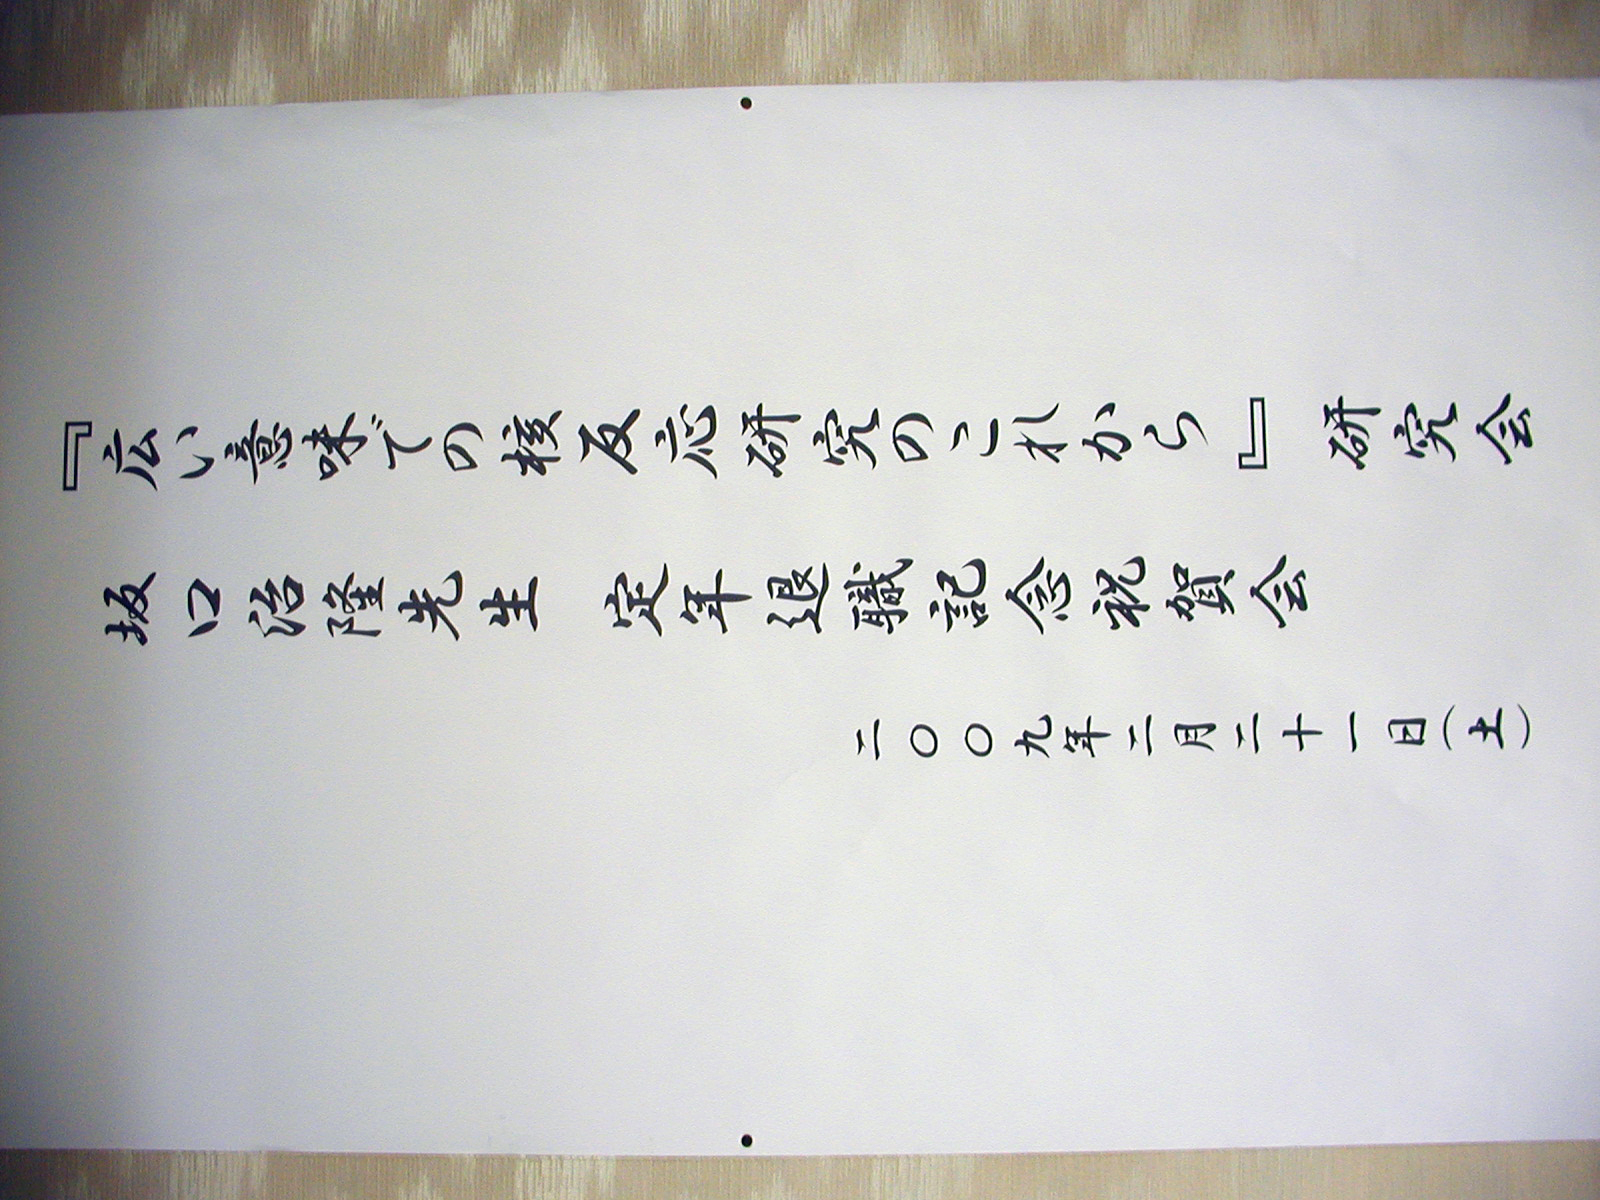 『広い意味での核反応研究のこれから』 研究会
坂口治隆先生 定年退職記念祝賀会
二〇〇九年二月二十一日(土)